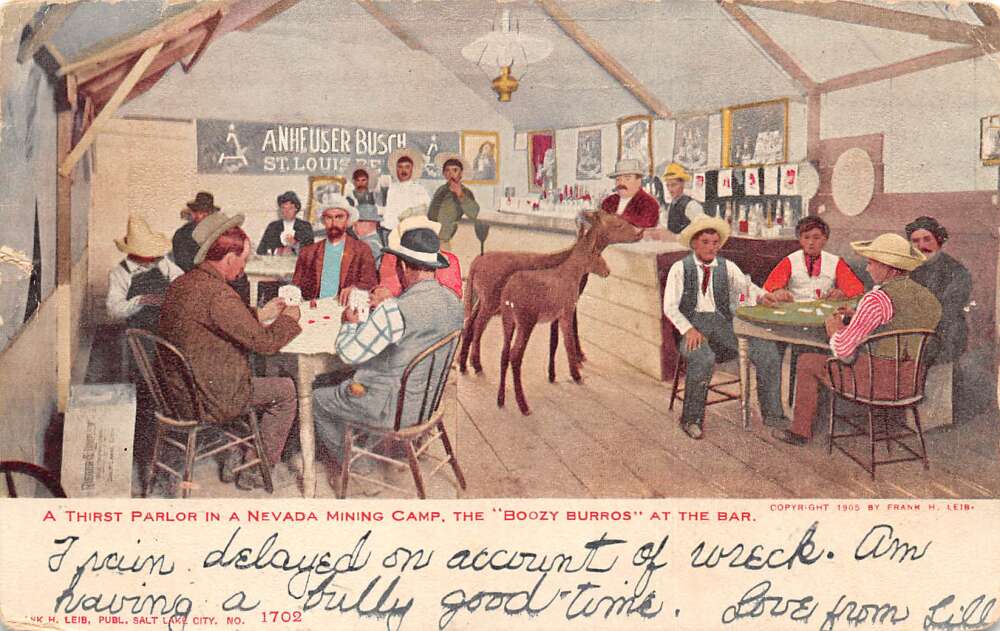 ANHEUSER BUSCH
ST. LOUIS BE
A THIRST PARLOR IN A NEVADA MINING CAMP, THE "BOOZY BURROS" AT THE BAR.
COPYRIGHT 1905 BY FRANK H. LEIB.
Train delayed on account of wreck. Am
having a bully good-time. Love from Lill
NK H. LEIB, PUBL. SALT LAKE CITY. NO. 1702